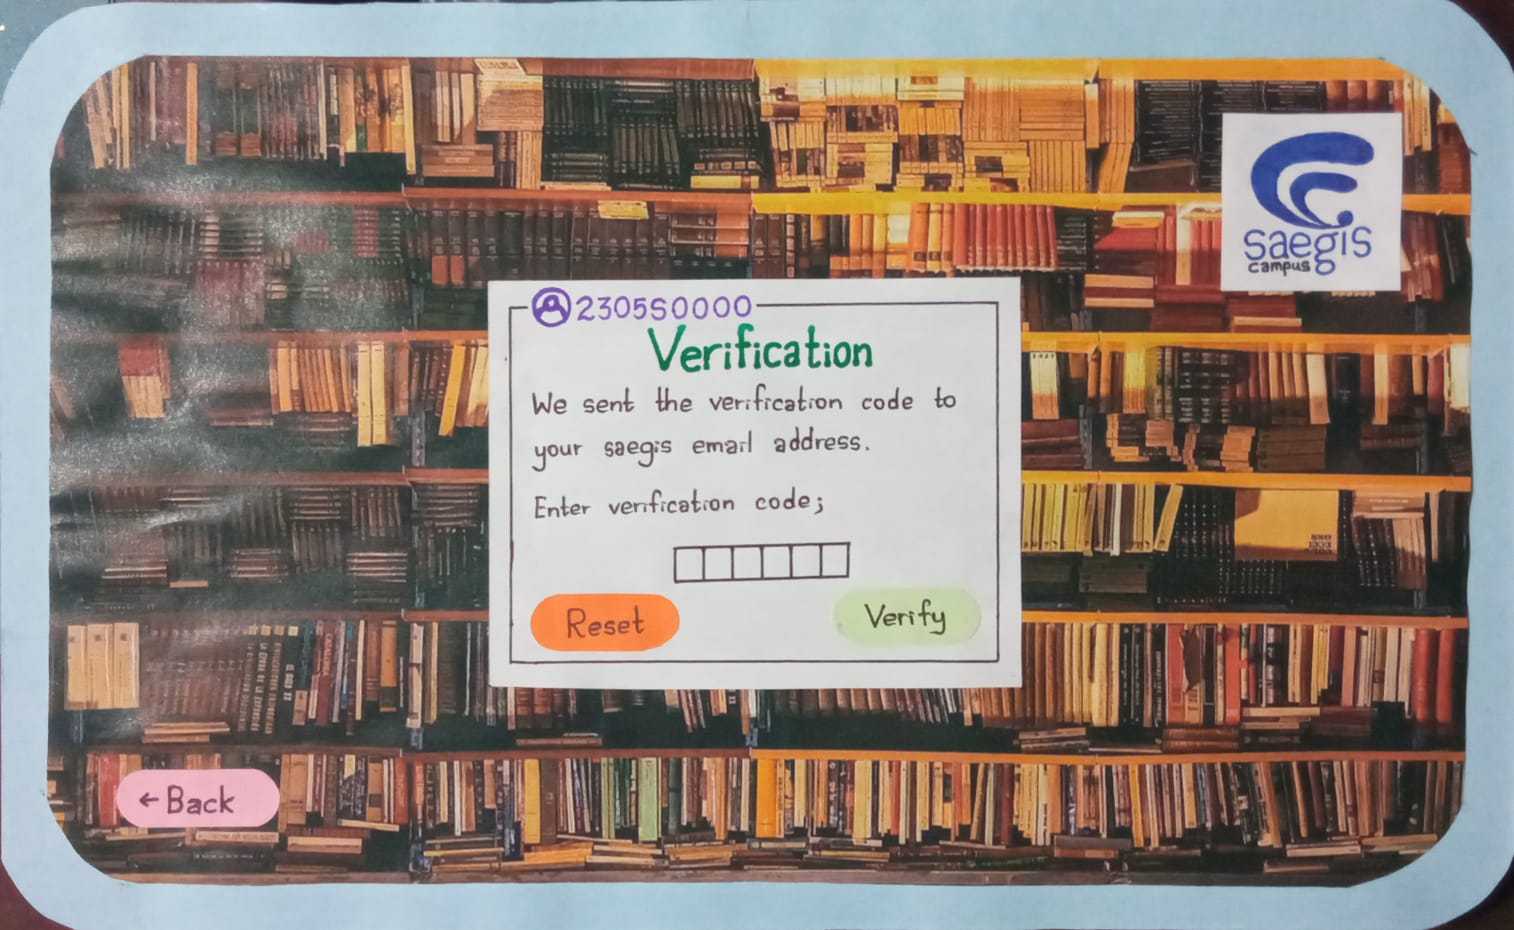 saegis
campus
2305S0000
Verification
We sent the verification code to
your saegis email address.
Enter verification code;
Reset
Verify
←Back